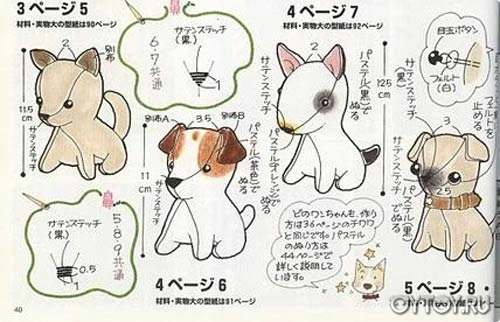 3ページ5
材料・実物大の型紙は90ページ
2
別布
11.5cm
サテンステッチ
鼻
サテンステッチ
(黒)
6・7共通
1
4ページ7
材料・実物大の型紙は92ページ
2
サテンステッチ
パステル(黒)でぬる
パステル(オレンジ)でぬる
12.5cm
目玉ボタン
フェルト
(白)
サテンステッチ
(黒)
フェルトを止める
3
2.5
パステル(黒)でぬる
サテンステッチ
別布A
3.5
別布B
パステル(茶色)でぬる
11cm
サテンステッチ
4ページ6
材料・実物大の型紙は91ページ
鼻
サテンステッチ
(黒)
0.5
5・8・9共通
どのワンちゃんも、作り
方は36ページのチワワ
と同じです。パステル
のぬり方は
44ページで
詳しく説明して
います。
5ページ8
40
OTTOY.RU